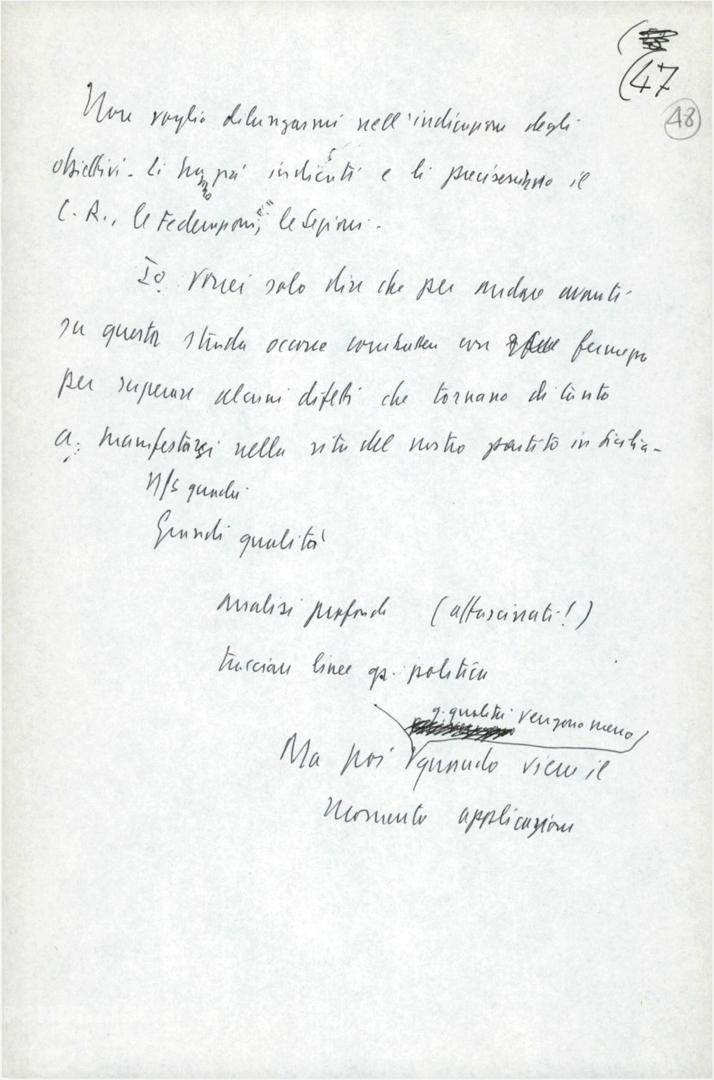 (47
48
Non voglio dilungarmi nell'indicazione degli
obiettivi. Li hanno già indicati e li preciseranno il
C.R., le Federazioni, le Sezioni.
Io vorrei solo dire che per andare avanti
su questa strada occorre combattere con fermezza
per superare alcuni difetti che tornano di tanto
a manifestarsi nella vita del nostro partito in Sicilia.
N/s quadri
Grandi qualità
Analisi profonde (affascinati!)
tracciare linee gr. politica
q. qualità vengono meno
Ma poi quando viene il
momento applicazione